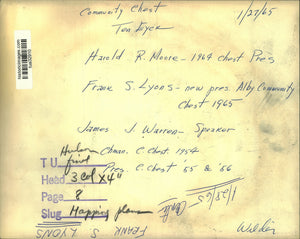 Community Chest
Ten Eyck
1/27/65
Harold R. Moore - 1964 Chest Pres
Frank S. Lyons - new pres. Alby Community
Chest 1965
James J Warren - Speaker
Chmn. C. Chest 1954
Pres C. Chest '55 & '56
T U
Head 3 Col X 4"
Page 8
Slug Happy plans
1/28/65
FRANK S LYONS